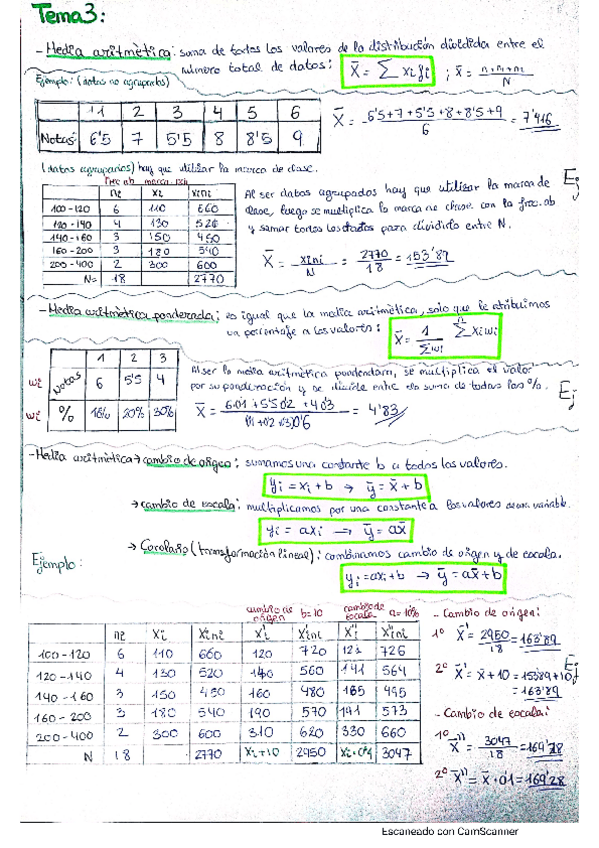 Tema 3:
- Media aritmètica: suma de todos los valores de la distribución dividida entre el
número total de datos: X̄ = ∑ xi fi ; x̄ =
Ejemplo: (datos no agrupados)
1 2 3 4 5 6
Notas: 6'5 7 5'5 8 8'5 9
X̄ = 6'5+7+5'5+8+8'5+9 / 6 = 7'416
(datos agrupados) hay que utilizar la marca de clase.
ni xi xini
100-120 6 110 660
120-140 4 130 520
140-160 3 150 450
160-200 3 180 540
200-400 2 300 600
N= 18 2770
Al ser datos agrupados hay que utilizar la marca de
clase, luego se multiplica la marca de clase con la frec. ab
y sumar todos los datos para dividirlo entre N.
Ej
X̄ = xini / N = 2770 / 18 = 153'89
- Media aritmètica ponderada: es igual que la media aritmètica, solo que le atribuimos
un porcentaje a los valores: X̄ = 1 / ∑wi ∑ xi wi
1 2 3
Notas 6 5'5 4
wi % 10% 20% 30%
Al ser la media aritmètica ponderada, se multiplica el valor
por su ponderación y se divide entre la suma de todos los %.
Ej
= 4'83
- Media aritmètica → cambio de origen: sumamos una constante b a todos los valores.
yi = xi + b → ȳ = x̄ + b
→ cambio de escala: multiplicamos por una constante a los valores de una variable.
yi = axi → ȳ = ax̄
→ Corolario (transformación lineal): combinamos cambio de origen y de escala.
Ejemplo:
yi = axi + b → ȳ = ax̄ + b
cambio de origen b=10 cambio de escala a=10%
ni xi xini xi' xi'ni xi'' xi''ni
100-120 6 110 660 120 720 121 726
120-140 4 130 520 140 560 141 564
140-160 3 150 450 160 480 165 495
160-200 3 180 540 190 570 191 573
200-400 2 300 600 310 620 330 660
N 18 2770 xi+10 2950 3047
- Cambio de origen:
1º X̄' = 2950 / 18 = 163'89
2º X̄' = x̄ + 10 = 153'89+10
= 163'89
Ej
- Cambio de escala:
1º X̄'' = 3047 / 18 = 169'28
2º X̄'' = x̄ · 0'1 = 169'28
Escaneado con CamScanner